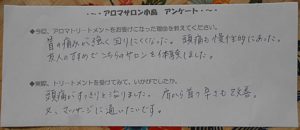 ・～・アロマサロン小島 アンケート・～・
●今回、アロマトリートメントをお受けになった理由を教えてください。
首の痛みが強く回りにくくなった。頭痛も慢性的にあった。
友人のすすめでこちらのサロンを体験しました。
●実際、トリートメントを受けてみて、いかがでしたか。
頭痛がすっきりと治りました。肩から首の辛さも改善。
又、マッサージに通いたいです。